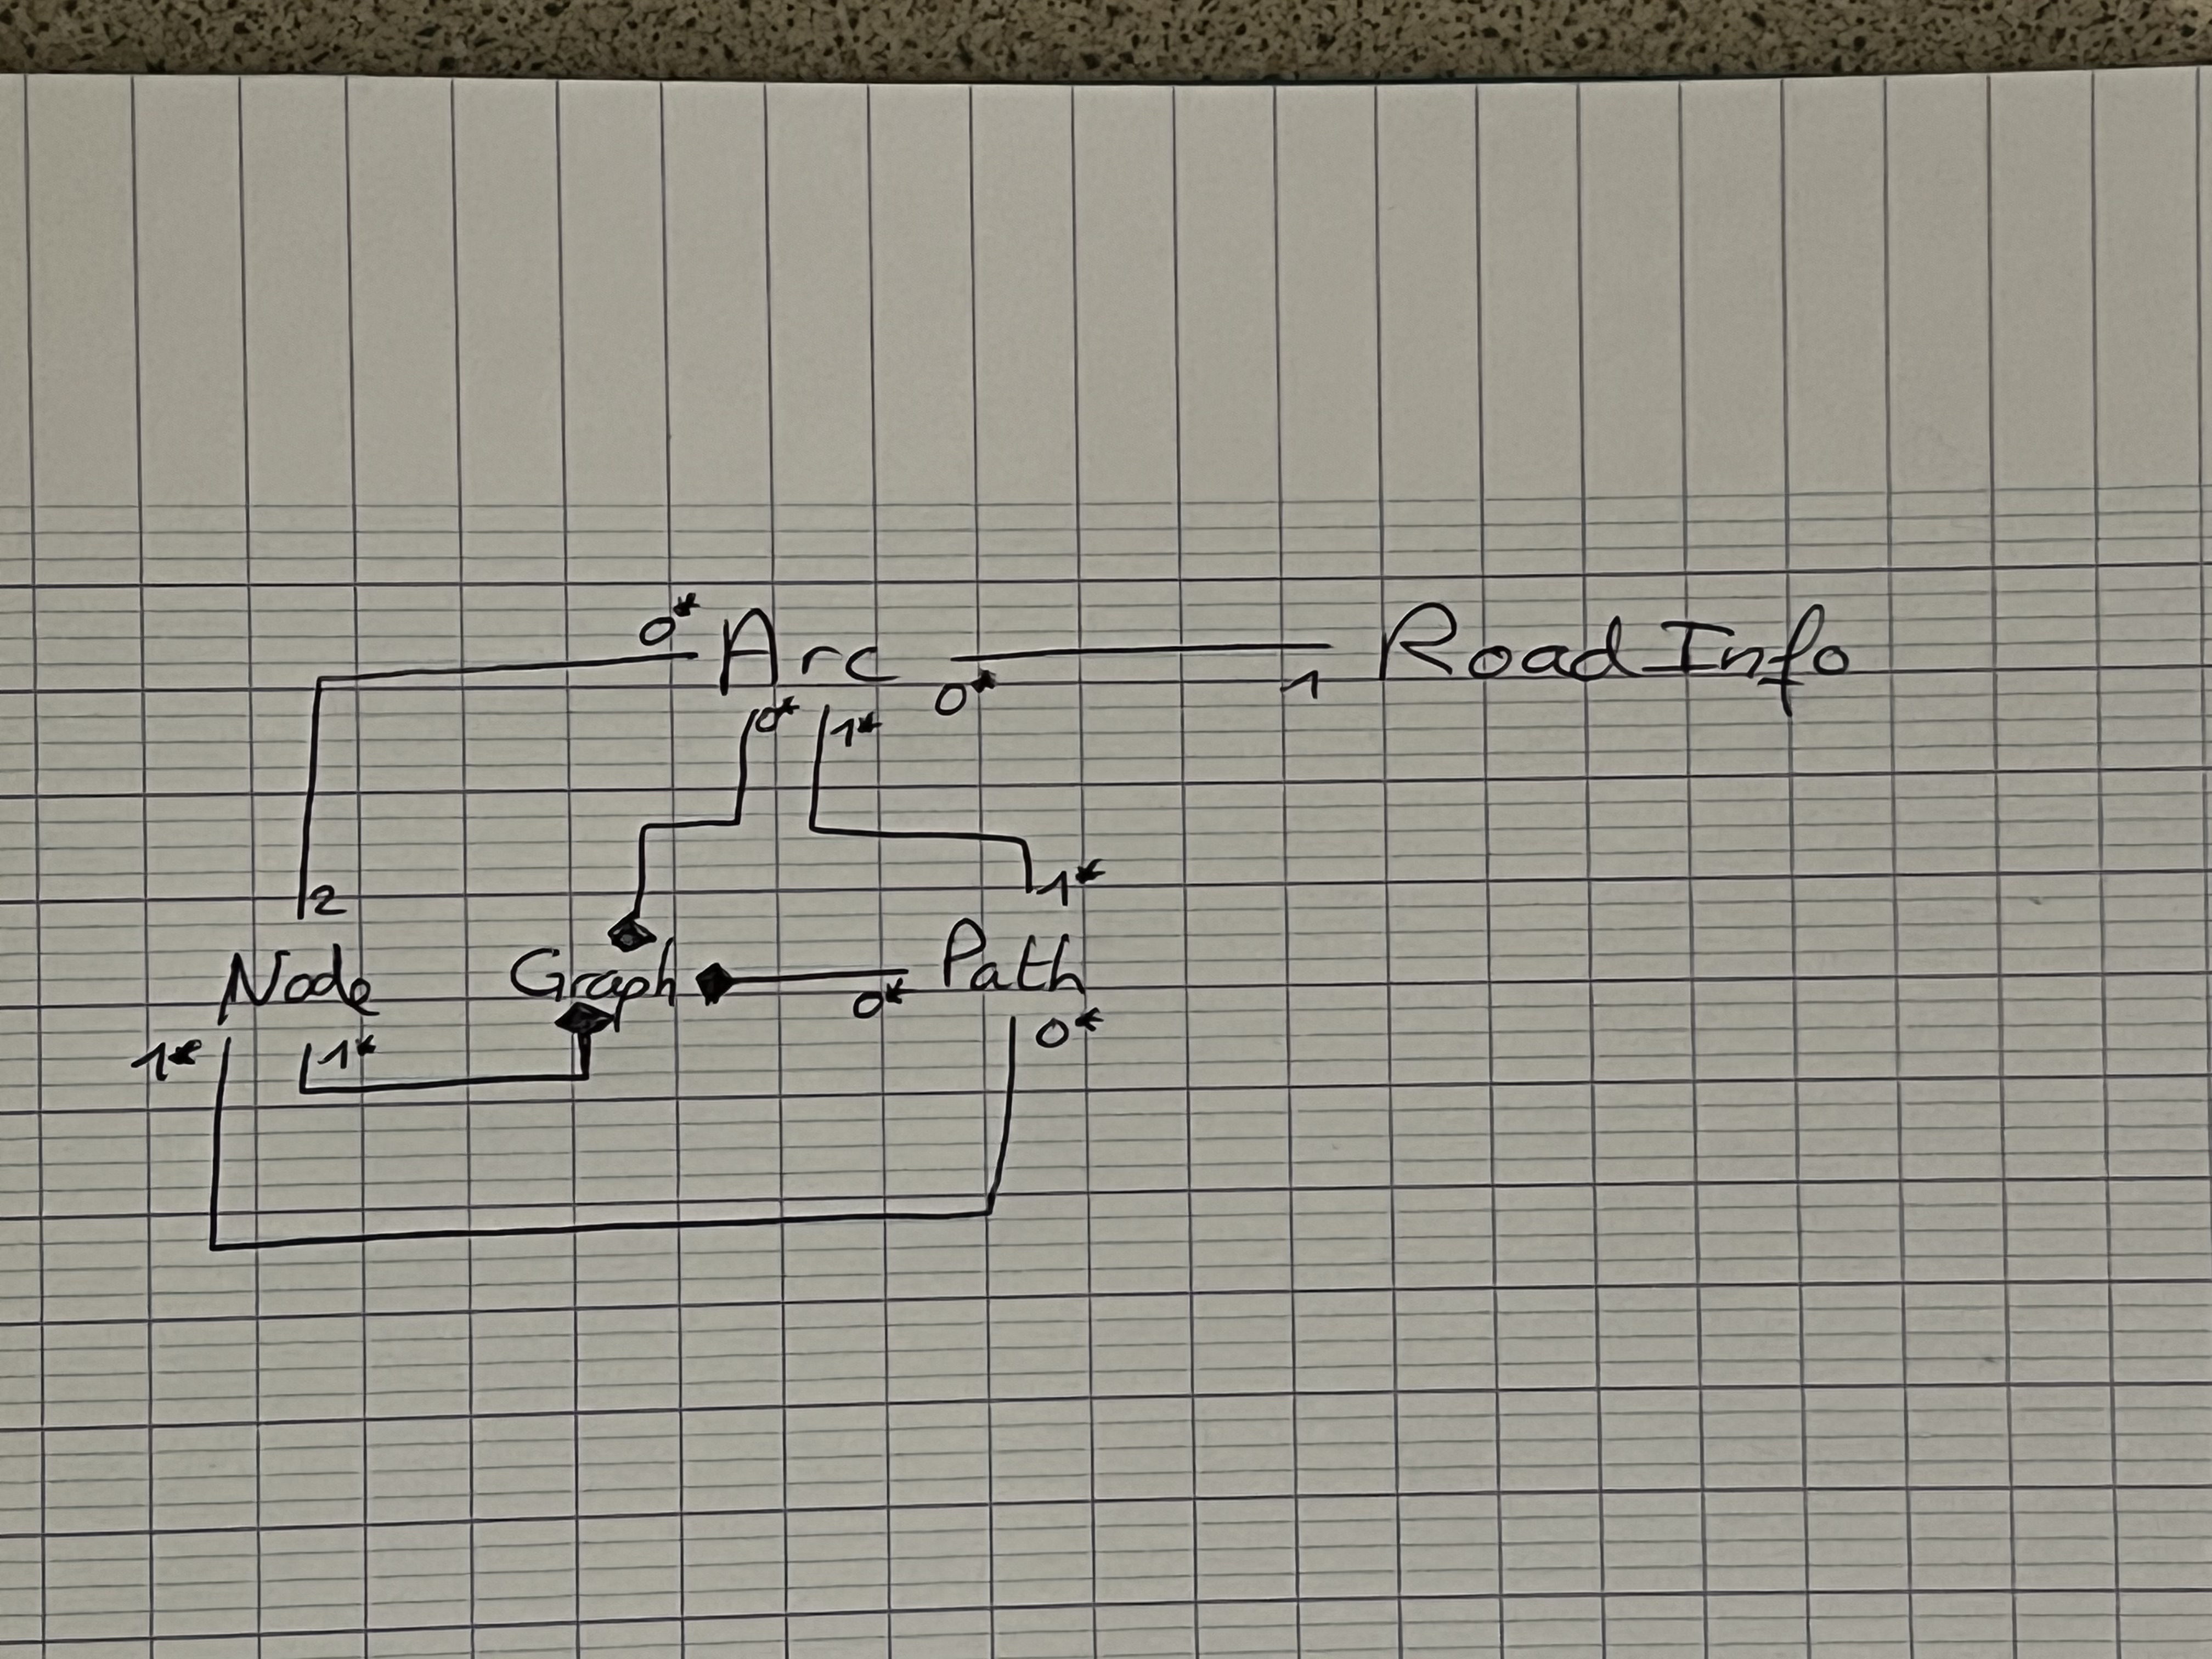 0* Arc 0* 1 RoadInfo
0* 1*
2 1*
Node Graph 0* Path
1* 1* 0*